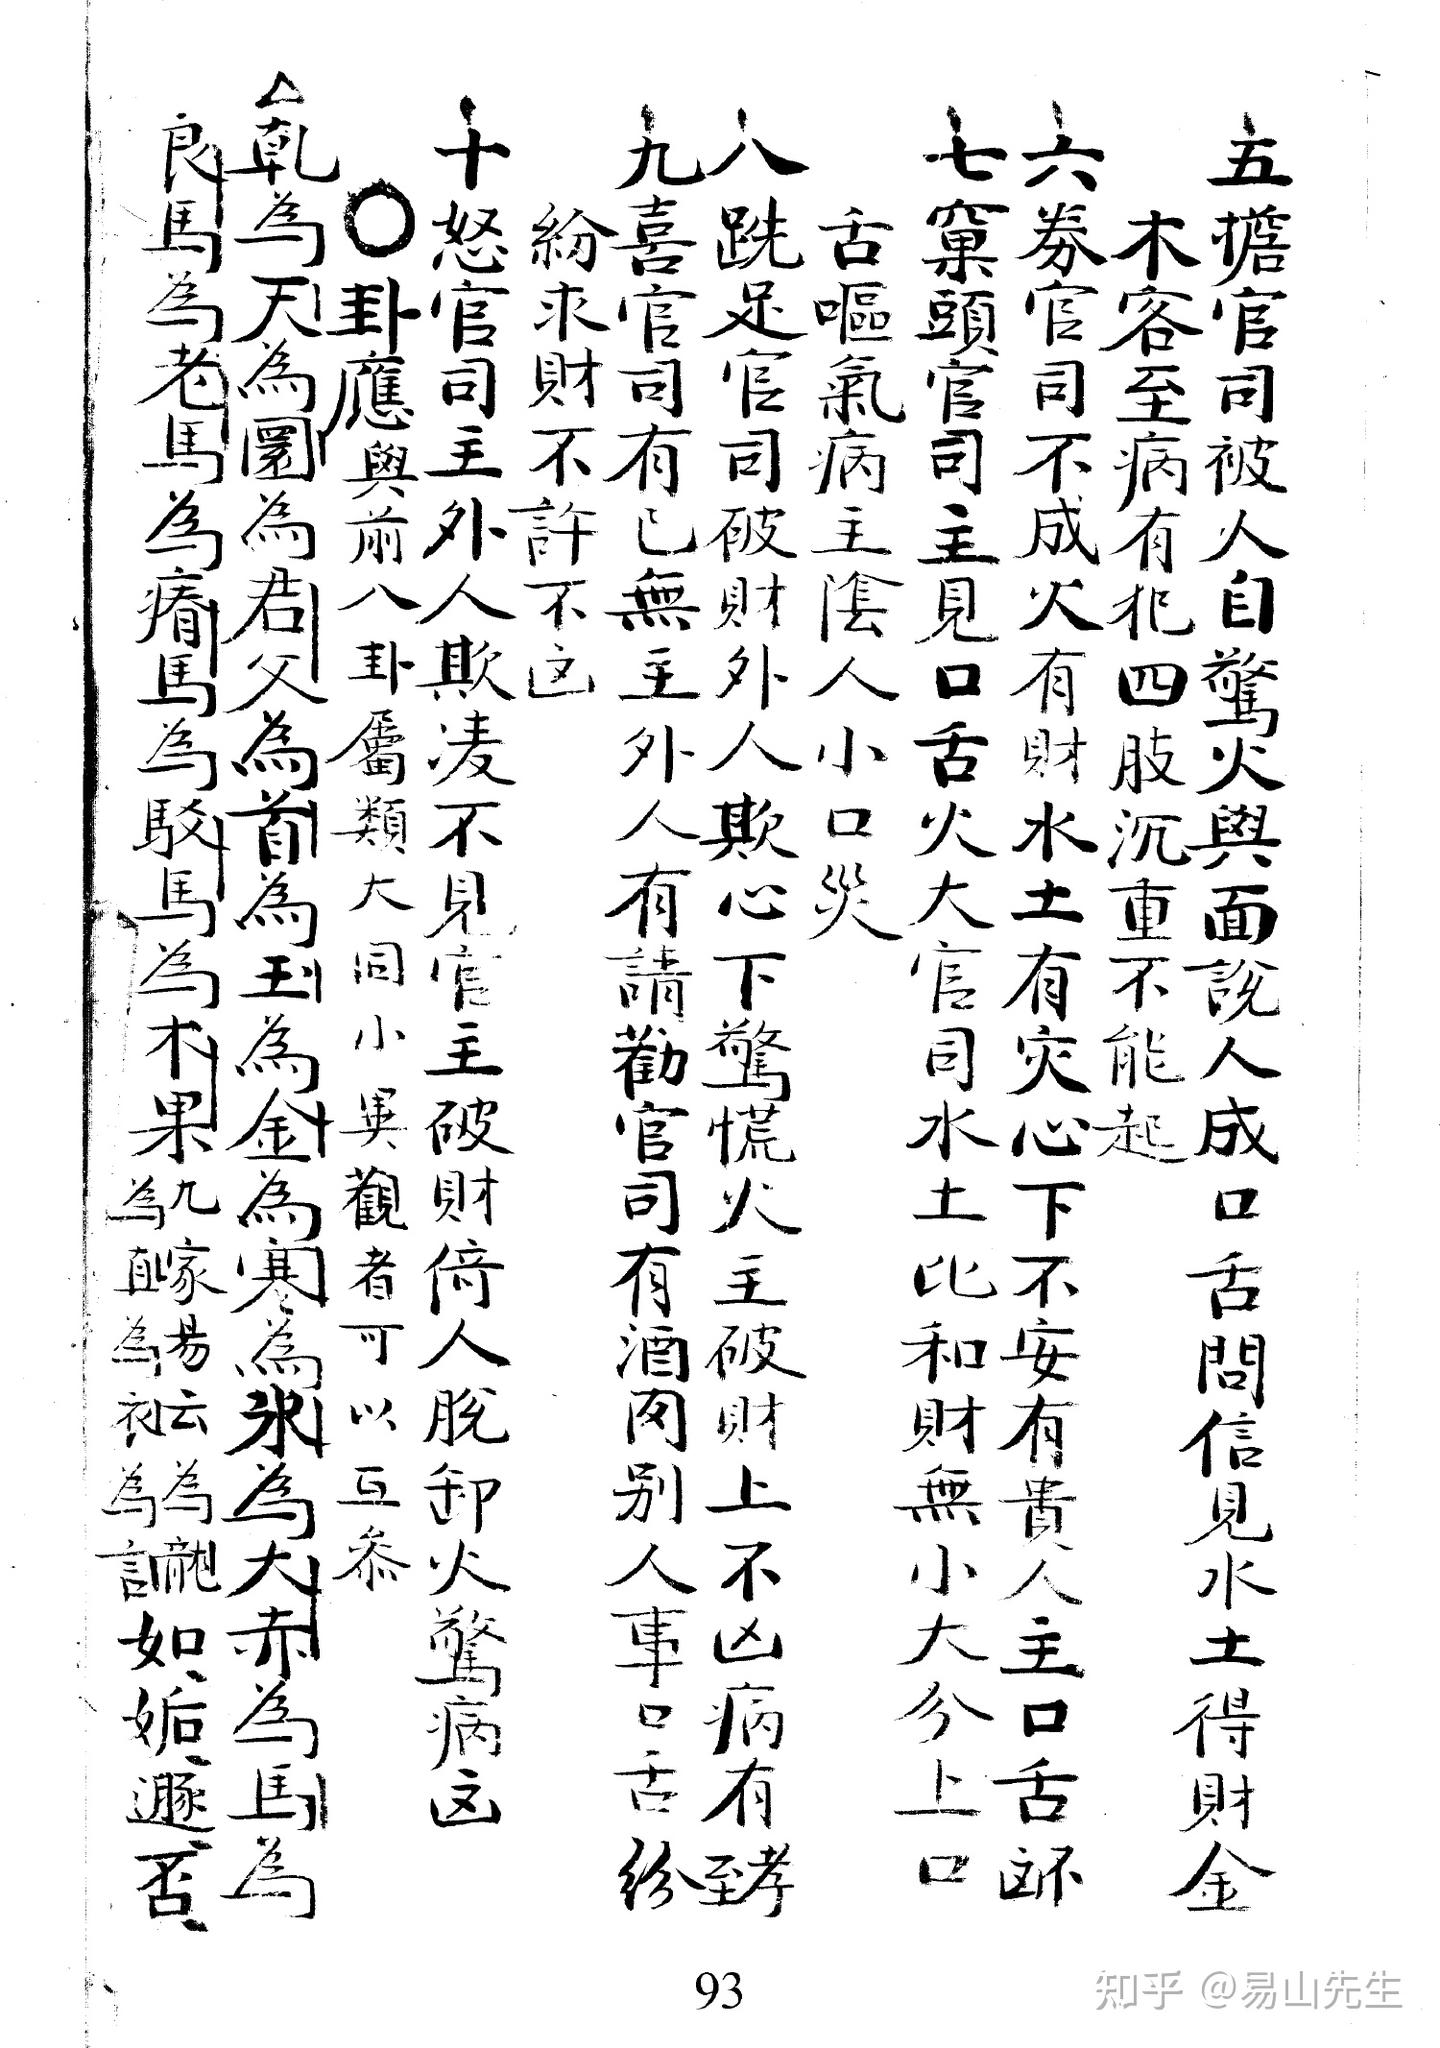 五擔官司被人自驚火與面説人成口舌問信見水土得財金
木客至病有犯四肢沉重不能起
六券官司不成火有財水土有灾心下不安有貴人主口舌
七窠頭官司主見口舌火大官司水土比和財無小大分上口
舌嘔氣病主陰人小口災
八跣足官司破財外人欺心下驚慌火主破財上不凶病有孝至
九喜官司有已無主外人有請勸官司有酒肉别人事口舌紛
紛求財不許不凶
十怒官司主外人欺凌不見官主破財倚人脫卸火驚病凶
○卦應與前八卦屬類大同小異觀者可以互参
△乾為天為圜為君父為首為玉為金為寒為氷為大赤為馬為
良馬為老馬為瘠馬為駁馬為木果九家易云為龍為直為衣為言如姤遯否
93
知乎 @易山先生